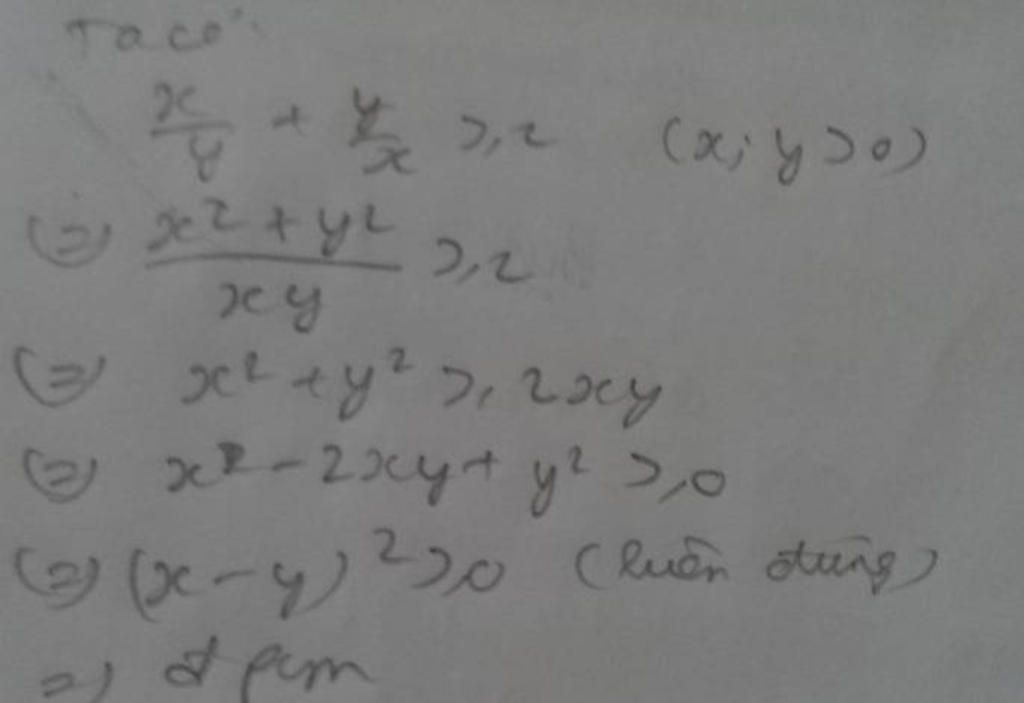 Ta có:
x/y + y/x ≥ 2 (x; y > 0)
⇔ (x² + y²)/(xy) ≥ 2
⇔ x² + y² ≥ 2xy
⇔ x² - 2xy + y² ≥ 0
⇔ (x - y)² ≥ 0 (luôn đúng)
=> đpcm